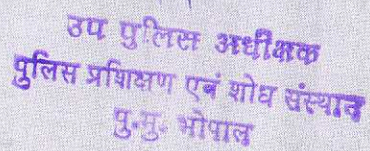 उप पुलिस अधीक्षक
पुलिस प्रशिक्षण एवं शोध संस्थान
पु.मु. भोपाल